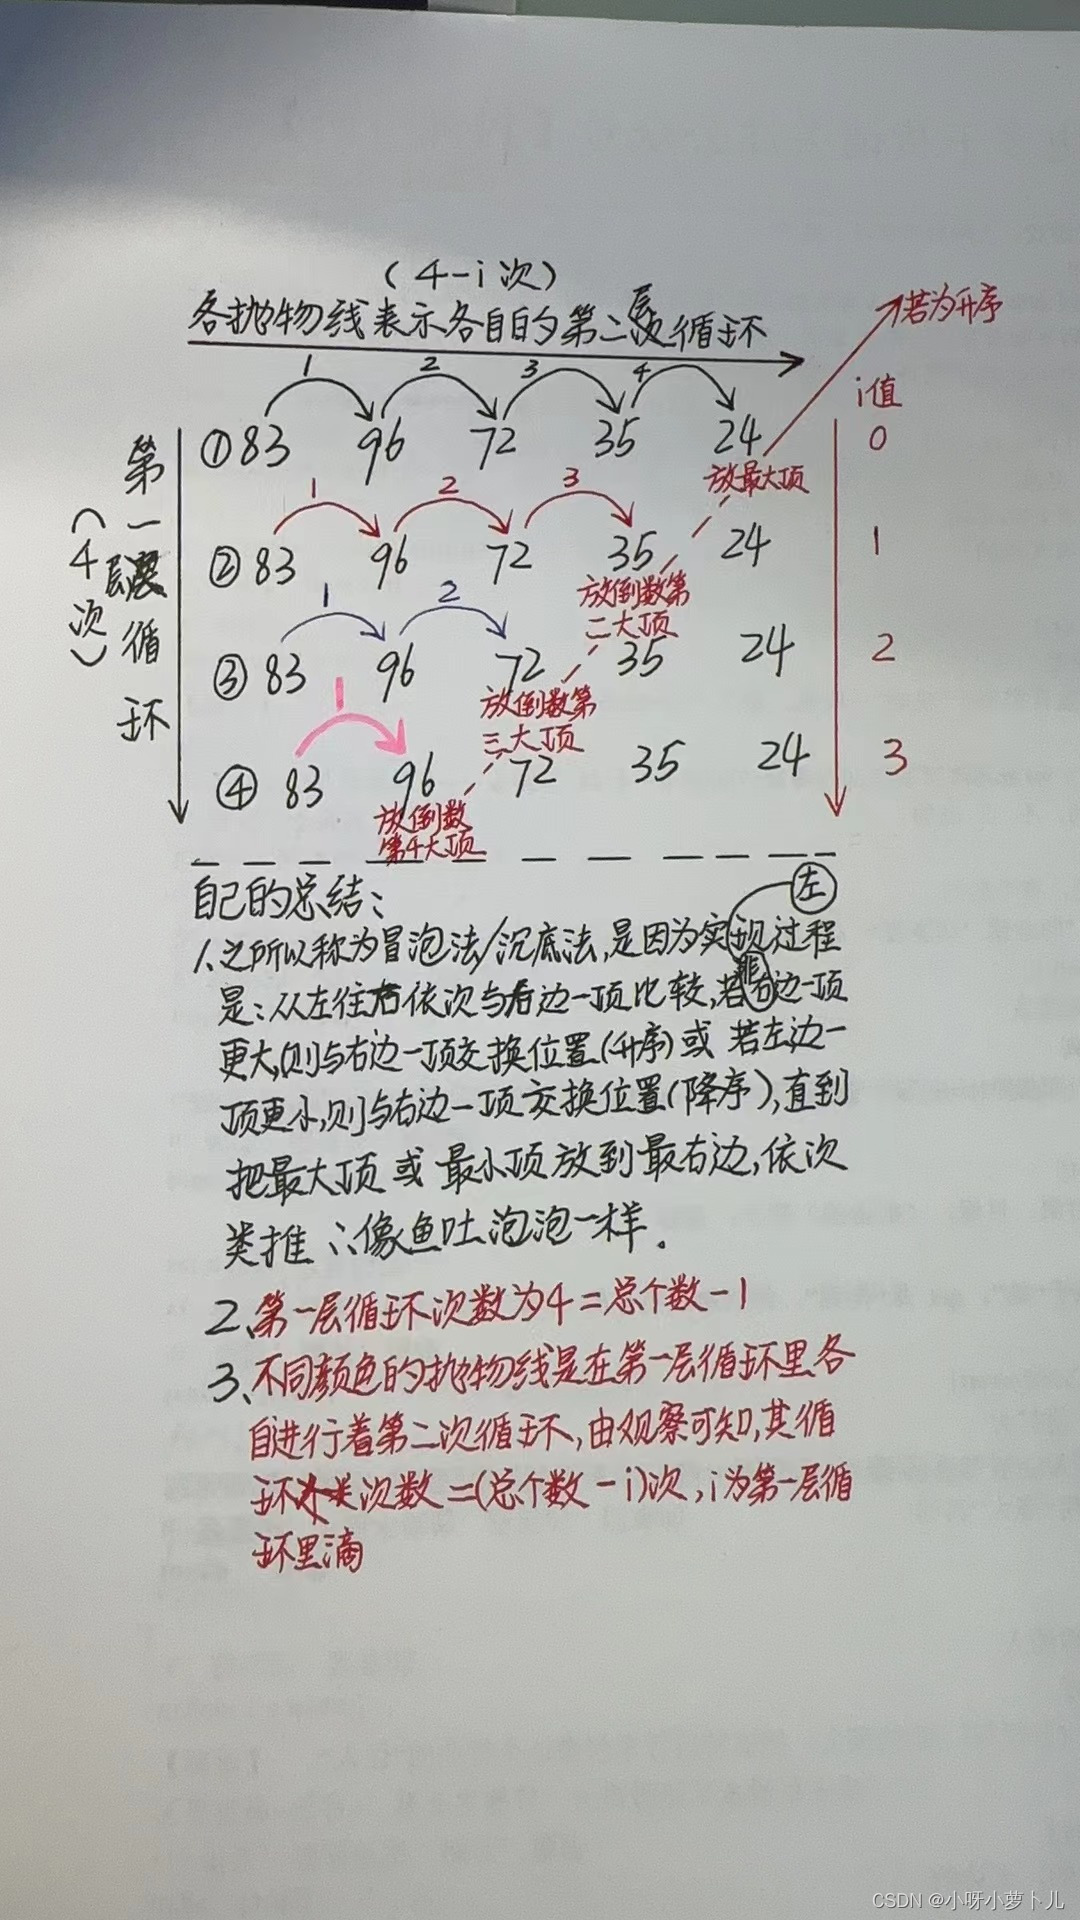 (4-i次)
各抛物线表示各自的第二层循环
若为升序
1 2 3 4
i值
①83 96 72 35 24 0
放最大项
1 2 3
②83 96 72 35 24 1
放倒数第
二大项
1 2
③83 96 72 35 24 2
放倒数第
三大项
1
④83 96 72 35 24 3
放倒数
第4大项
第一层循环
(4次)
自己的总结:
左
1、之所以称为冒泡法/沉底法,是因为实现过程
是:从左往右依次与右边一项比较,若边一项
更大,则与右边一项交换位置(升序)或 若左边一
项更小,则与右边一项交换位置(降序),直到
把最大项 或 最小项放到最右边,依次
类推 ∴像鱼吐泡泡一样.
2、第一层循环次数为4=总个数-1
3、不同颜色的抛物线是在第一层循环里各
自进行着第二次循环,由观察可知,其循
环次数=(总个数-i)次,i为第一层循
环里滴
CSDN @小呀小萝卜儿